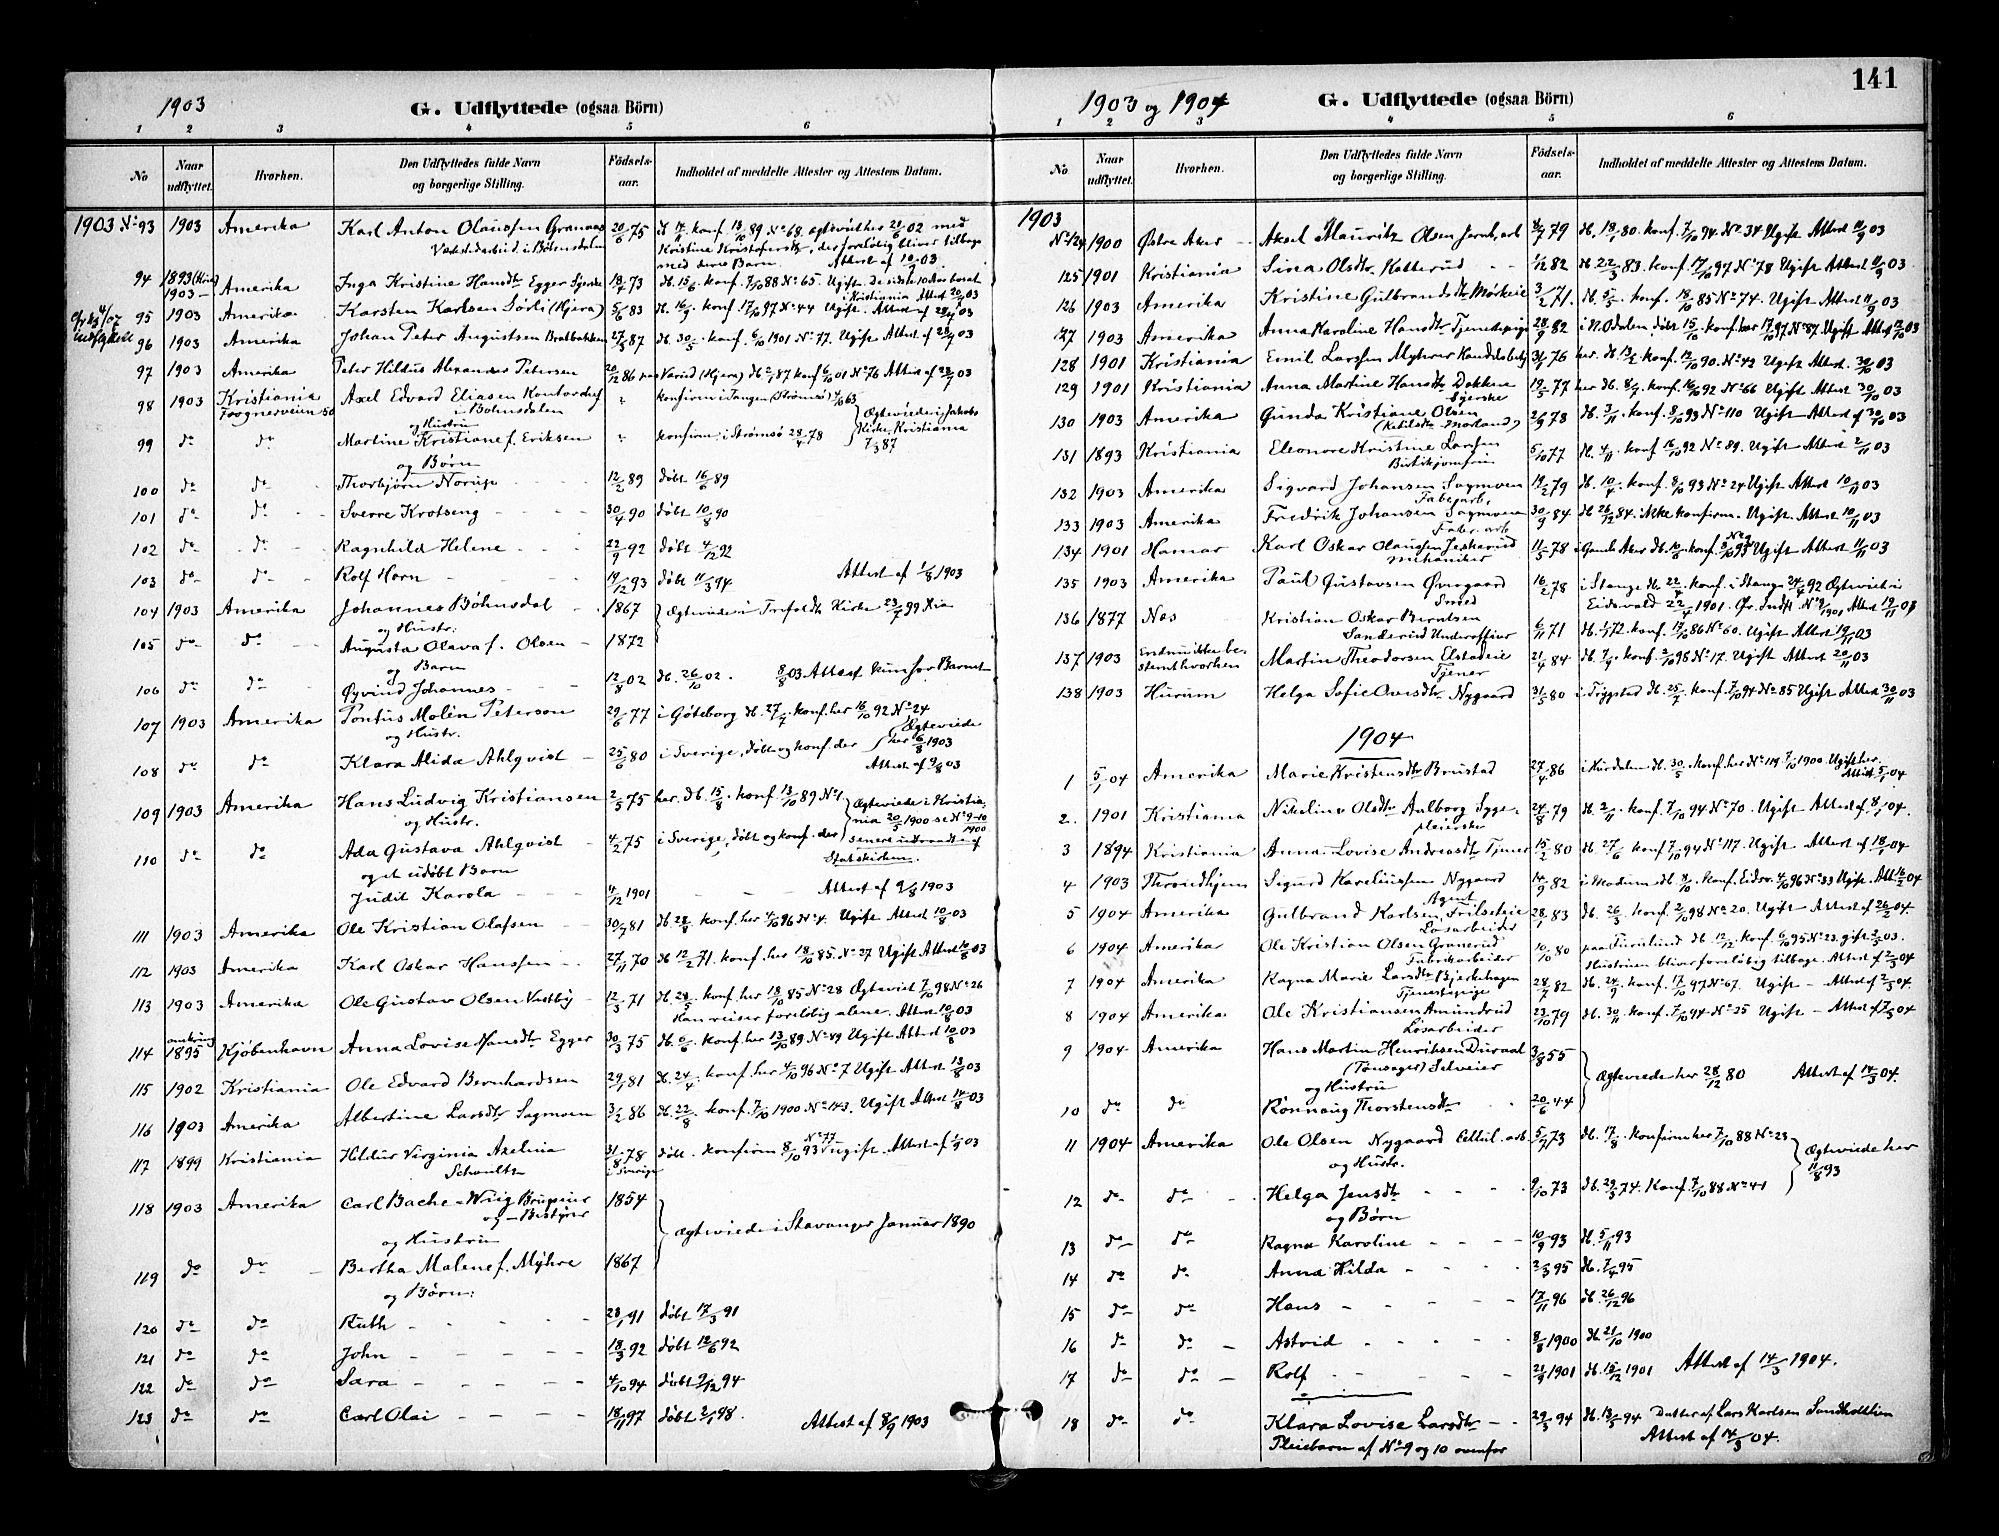 1903
G. Udflyttede (ogsaa Börn)
1 2 3 4 5 6
No
Naar udflyttet.
Hvorhen.
Den Udflyttedes fulde Navn og borgerlige Stilling.
Födsels-aar.
Indholdet af meddelte Attester og Attestens Datum.
1903 No 93 1903 Amerika Karl Anton Olaussen 20/6 75
med dere Barn. Attest af 10/9 03
94 1893 1903 Amerika Inga Kristine Hansdtr Egger 73 konf. 7/10 88 No 65. Ugift.
95 1903 Amerika Karsten Karlsen Sörli (Hjera) 5/6 83 konf. 17/10 97 No 44 Ugift. Attest af 28/7 03
96 1903 Amerika Johan Peter Augustsen 27/3 87 db. 30/5 konf. 6/10 1901 No 77. Ugift Attest 28/7 03
97 1903 Amerika Peter Hildus Petersen 20/12 86 konf 6/10 01 No 76 Attest af 28/7 03
98 1903 Kristiania Axel Edvard Eliasen
i Böhnsdalen
og Hustru
99 do do Martine Kristiane f. Eriksen konfirm. i Strömsö 28/4 78 Ægteviede i Jakobs Kirke, Kristiania 7/3 87
og Börn
100 do do Thorbjörn Norup 12/2 89 döbt 16/6 89
101 do do Sverre Krotseng 30/4 90 döbt 10/8 90
102 do do Ragnhild Helene 22/9 92 döbt 4/12 92
103 do do Rolf Horn 19/12 93 döbt 11/3 94 Attest af 1/8 1903
104 1903 Amerika Johannes Böhnsdal 1867 Ægteviede i Trefoldh. Kirke 23/7 99 Kra
og Hustr:
105 do do Augusta Olava f. Olsen 1872
og Barn
106 do do Øyvind Johannes 12/8 02 db. 26/10 02. 8/8 03 Attest kun for Barnet
107 1903 Amerika Pontus Molén Peterson 29/6 77 i Göteborg db. 27/7 konf. her 16/10 92 No 24
og Hustr.
Ægteviede her 6/8 1903
108 do do Klara Alida Ahlqvist 25/6 80 i Sverige, döbt og konf. der Attest af 9/8 03
109 1903 Amerika Hans Ludvig Kristiansen 2/5 75 her. db. 15/8 konf 13/10 89 No 1 Ægteviede i Kristiania 20/5 1900 se No 9-10 1900
og Hustr.
110 do do Ada Gustava Ahlqvist 4/2 75 i Sverige, döbt og konf. der senere udtraadt af Statskirken.
og et udöbt Barn
Judit Karola 4/12 1901 Attest af 9/8 1903
111 1903 Amerika Ole Kristian Olafsen 30/7 81 db 28/8 konf. her 4/10 96 No 4. Ugift Attest 10/8 03
112 1903 Amerika Karl Oskar Hanssen 27/11 70 db 12/2 71. konf. her 18/10 85. No 27 Ugift Attest 10/8 03
113 1903 Amerika Ole Gustav Olsen Vestby 12/3 71 db. 28/5 konf. her 18/10 85 No 28 Ægteviet 7/10 98 No 26
Han reiser forelöbig alene. Attest 10/8 03
114 omkring 1895 Kjöbenhavn Anna Lovise Hansdtr Egger 30/3 75 db. 6/6 konf. her 13/10 89 No 49 Ugift Attest 10/8 03
115 1902 Kristiania Ole Edvard Bernhardsen 29/1 81 db. 24/4 konf. her 4/10 96 No 7 Ugift Attest 13/8 03
116 1903 Amerika Albertine Larsdtr Sagmoen 3/2 86 db. 22/8 konf. 7/10 1900 No 143. Ugift Attest 14/8 03
117 1899 Kristiania Hildur Virginia Axelina 31/8 78 i Sverige döbt. konfirm 8/10 93 No 77 ugift. Attest af 1/9 03
118 1903 Amerika Carl Bache-Wiig 1854
og Bestyrer
og Hustru
Ægteviede i Stavanger Januar 1890
119 do do Bertha Malene f. Myhre 1867
og Börn:
120 do do Ruth 28/1 91 döbt 17/3 91
121 do do John 18/3 92 döbt 12/6 92
122 do do Sara 4/10 94 döbt 9/12 94
123 do do Carl Olai 18/11 97 döbt 2/1 98. Attest af 8/9 1903
141
1903 og 1904
G. Udflyttede (ogsaa Börn)
1 2 3 4 5 6
No
Naar udflyttet.
Hvorhen.
Den Udflyttedes fulde Navn og borgerlige Stilling.
Födsels-aar.
Indholdet af meddelte Attester og Attestens Datum.
1903
No 124 1900 Östre Aker Aksel Mauritz Olsen 79 konf. 7/10 94. No 34 Ugift Attest 11/9 03
125 1901 Kristiania Sina Olsdtr Katterud 1/12 82 db. 22/3 83. konf. 17/10 97 No 78 Ugift Attest 11/9 03
126 1903 Amerika Kristine Gulbrandsdtr Mörkeie 3/2 71. konf. 18/10 85 No 74. Ugift Attest 11/9 03
127 1903 Amerika Anna Karoline Hansdtr Tjenestepige 28/9 82 i N. Odalen döbt 15/10 konf. her 17/10 97 No 87. Ugift Attest 12/10 03
128 1901 Kristiania Emil Larssen Myhrer 31/1 76 her. konf. 12/10 90. No 42 Ugift Attest 30/10 03
129 1901 Kristiania Anna Martine Hansdtr Dokken 19/5 77 her db. 8/7 konf. 16/10 92 No 66 Ugift Attest 30/10 03
Syerske
130 1903 Amerika Gunda Kristiane Olsen 2/9 78 db. 3/11 konf. 8/10 93 No 110 Ugift Attest af 30/10 03
131 1893 Kristiania Eleonore Kristine Larsen 5/10 77 db. 4/11 konf 16/10 92 No 89. Ugift Attest 2/11 03
Butikjomfru
132 1903 Amerika Sigvard Johansen Sagmoen 19/2 79 db. 10/4 konf. 8/10 93 No 24 Ugift Attest 10/11 03
133 1903 Amerika Fredrik Johansen Sagmoen 30/9 84 db 26/12 84. ikke konfirm. Ugift Attest 10/11 03
134 1901 Hamar Karl Oskar Olaussen 11/5 78 db. 10/6 Ugift Attest 11/11 03
Mekaniker
135 1903 Amerika Paul Gustavsen Övregaard 16/2 78 i Stange db. 22/4 konf. i Stange 24/4 92 Ægteviet i
Smed Eidsvold 22/4 1901.
136 1877 Nes Kristian Oskar Berntsen 6/11 71 db. 1/1 72. konf. 17/10 86 No 60. Ugift Attest 19/11 03
Sanderud Underofficer
137 1903 Endnu ikke bestemt hvorhen Martin Theodorsen Elstadeie 21/4 84 db. 7/9 konf. No 17. Ugift Attest 20/11 03
Tjener
138 1903 Hurum Helga Sofie Ovesdtr Nygaard 31/5 80 i Trygstad db. 25/7 konf. 7/10 94 No 85 Ugift Attest 30/11 03
1904
1 5/1 04 Amerika Marie Kristensdtr Brustad 27/4 86 i Hurdalen db. 30/5 konf. her No 119 7/10 1900 Ugift her Attest 5/1 04
2. 1901 Kristiania Nikoline Olsdtr Aalborg Sygepleierske 24/8 79 db. 2/11 konf. 7/10 94 No 70. Ugift Attest af 8/1 04.
3 1894 Kristiania Anna Lovise Andreasdtr Tjener 15/2 80 db 27/6 konf 7/10 94 No 117. Ugift Attest af 18/1 04
4 1903 Throndhjem Sigurd Kareliussen Nygaard 14/9 82 i Modum db konf. Eidsv. 4/10 96 No 33 Ugift. Att 16/2 04
Agent
5 1904 Amerika Gulbrand Karlsen Frilseteie 28/1 83 db. 26/3 konf. 2/10 98 No 20. Ugift Attest af 26/2 04.
Lösarbeider
6 1904 Amerika Ole Kristian Olsen Granerud 10/10 80 paa Furulund db. 12/12 konf. 6/10 95 No 23. gift 03.
Fabrikarbeider Hustruen bliver forelöbig tilbage. Attest af 2/3 04
7 1904 Amerika Ragna Marie Larsdtr Bjerkehagen 28/7 82 db. 24/9 konf. 17/10 97 No 67. Ugift – Attest af 2/3 04.
Tjenestepige
8 1904 Amerika Ole Kristiansen Amundrud 23/10 79 db. 30/11 konf. 7/10 94 No 25 Ugift – Attest af 7/3 04
Lösarbeider
9 1904 Amerika Hans Martin Henriksen 55
(Tömager) Selveier
og Hustru
Ægteviede her 28/12 80 Attest af 14/3 04.
10 do do Rönnaug Thorstensdtr 20/6 44
11 1904 Amerika Ole Olsen Nygaard 5/7 73 db. 17/8 konfirm her 7/10 88 No 23
og Hustr. Ægteviede her 11/8 93
12 do do Helga Jensdtr 9/10 73 db. 29/3 74. Konf. 7/10 88 No 41
og Börn
13 do do Ragna Karoline 10/9 93 db. 5/11 93
14 do do Anna Hilda 2/3 95 db. 7/4 95
15 do do Hans 17/11 96 db. 26/12 96
16 do do Astrid 8/8 1900 db 21/10 1900
17 do do Rolf 1901 db. 15/12 1901 Attest af 14/3 1904.
18 do do Klara Lovise Larsdtr 29/3 94 db. 13/5 94 Datter af Lars Karlsen
Pleiebarn af No 9 og 10 ovenfor Attest af 14/3 04.